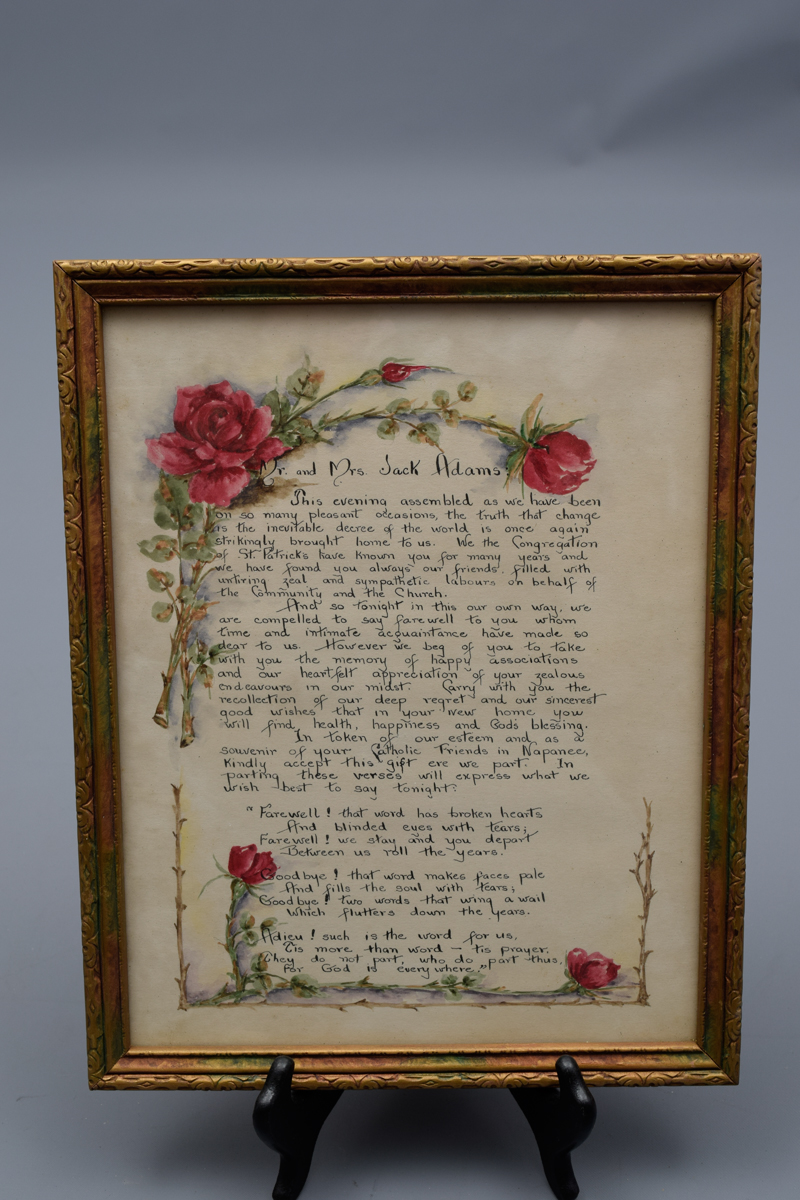 Mr. and Mrs. Jack Adams:
This evening assembled as we have been
on so many pleasant occasions, the truth that change
is the inevitable decree of the world is once again
strikingly brought home to us. We the Congregation
of St. Patrick's have known you for many years and
we have found you always our friends, filled with
untiring zeal and sympathetic labours on behalf of
the Community and the Church.
And so tonight in this our own way, we
are compelled to say farewell to you whom
time and intimate acquaintance have made so
dear to us. However we beg of you to take
with you the memory of happy associations
and our heartfelt appreciation of your zealous
endeavours in our midst. Carry with you the
recollection of our deep regret and our sincerest
good wishes that in your new home you
will find, health, happiness and God's blessing.
In token of our esteem and as a
souvenir of your Catholic Friends in Napanee,
Kindly accept this gift ere we part. In
parting these verses will express what we
wish best to say tonight.
"Farewell! that word has broken hearts
And blinded eyes with tears;
Farewell! we stay and you depart
Between us roll the years.
Goodbye! that word makes faces pale
And fills the soul with tears;
Goodbye! two words that wing a wail
Which flutters down the years.
Adieu! such is the word for us,
Tis more than word – tis prayer,
They do not part, who do part thus,
For God is everywhere."